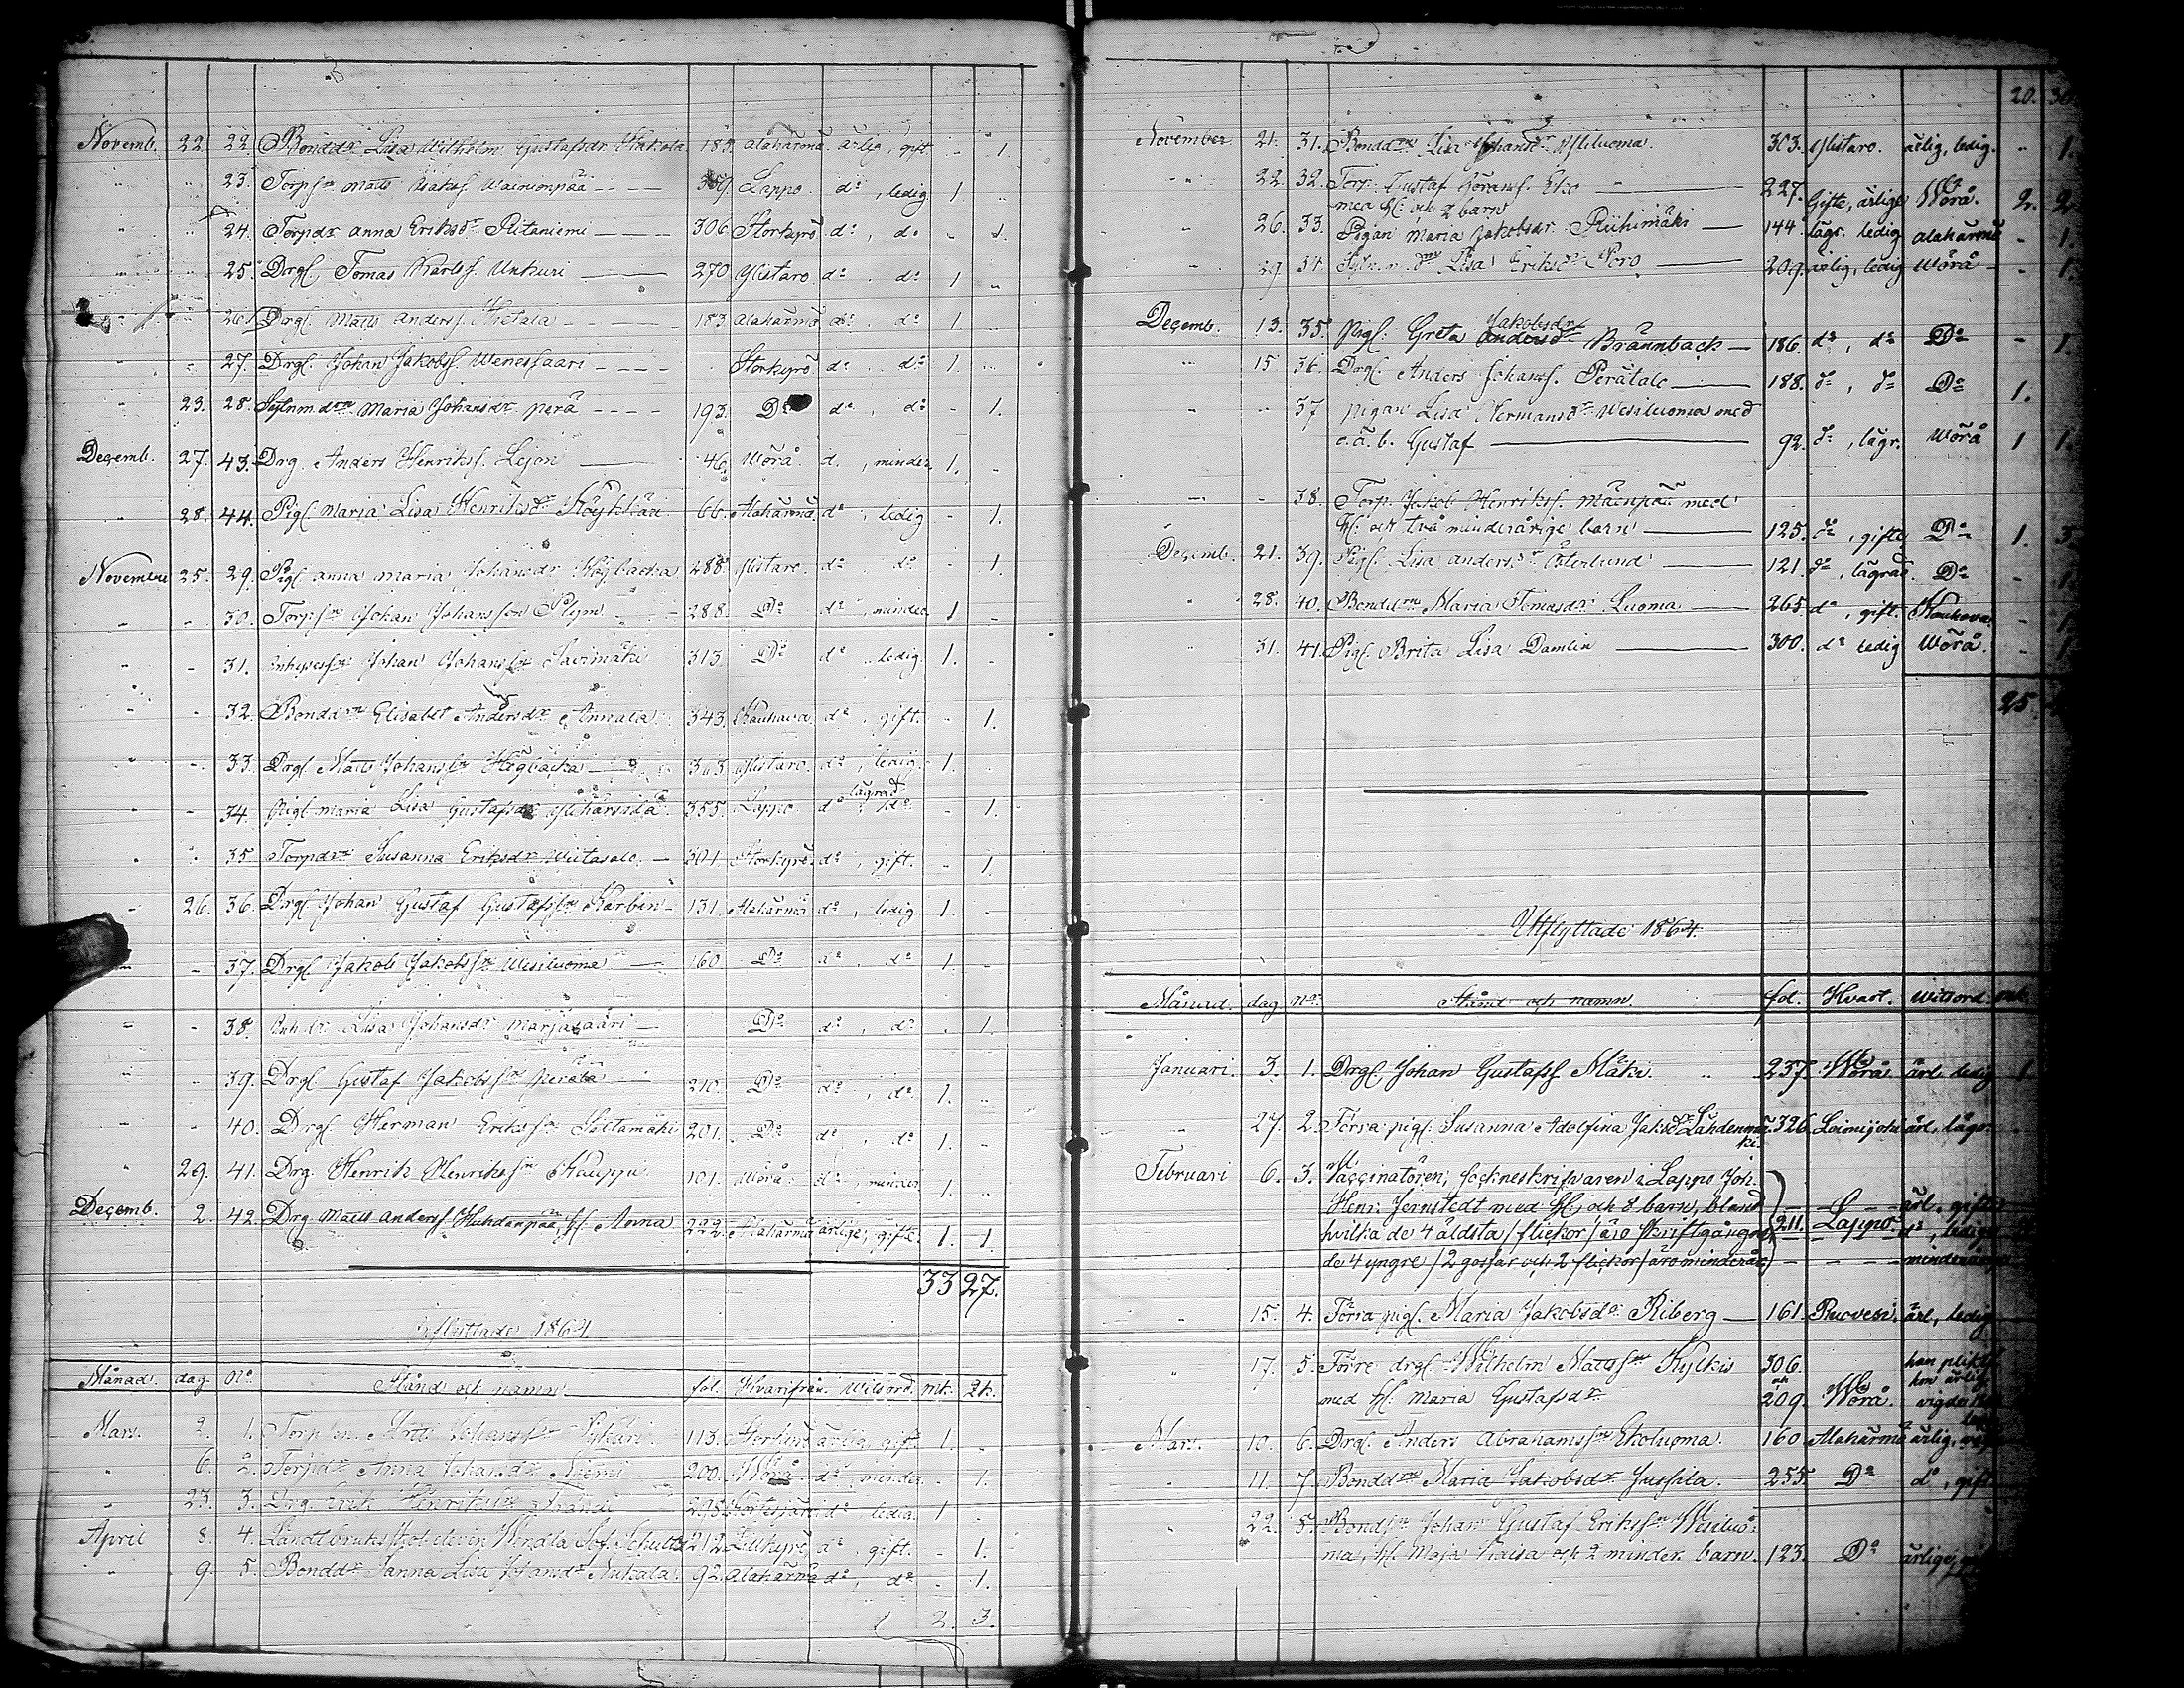 Novemb. 22. 22. Bonddr Lisa Wilhelm. Gustafsdr Hakola 183. Alahärmä ärlig, gift - 1.
" " 23. Torpsn Matts Isaks. 359 Lappo do, ledig 1 "
" " 24. Torpdr Anna Eriksdr Ritaniemi 306 Storkyro do, do - 1.
" " 25. Drgl. Tomas Karlss. Unkuri 270 Ylistaro do. do 1 "
" " 26. Drgl. Matts Anderss. 183 Alahärmä do. do 1. "
" " 27. Drgl. Johan Jakobss. Wenessaari Storkyro do. do 1. "
" 23. 28. Sytnm.drn Maria Johansdr Perä 193. Do do, do - 1.
Decemb. 27. 43. Drg. Anders Henrikss. Lejon 46. Wörå d., minder. 1. -
" 28. 44. Pigl. Maria Lisa Henriksdr Köykkää 66. Alahärmä do, ledig - 1.
Novembre 25. 29. Pigl Anna Maria Johansdr Högbacka 288. Ylistaro. do. do. - 1.
" - 30. Torpsn Johan Johansson Plym 288. Do do, minder. 1 -
" - 31. Inhysessn Johan Johansson Savimäki 313. Do do, ledig. 1. -
" - 32. Bonddrn Elisabet Andersdr Annala 343. Kauhava do, gift. " 1.
" - 33. Drgl. Matts Johansson Högbacka 303 Ylistaro. do, ledig. 1.
lägrad
" - 34. Pigl Maria Lisa Gustafsdr 355. Lappo do. do. - 1.
" " 35. Torpdr Susanna Eriksdr Wiitasalo 301 Storkyro. do, gift. " 1.
" 26. 36. Drgl Johan Gustaf Gustafsson Karbin 131. Alahärmä do, ledig 1. -
" - 37. Drgl Jakob Jakobsson Wesiluoma 160 Do do. do. 1. -
" - 38. Lisa Johansdr Marjasaari Do do, do. . 1.
" - 39. Drgl Gustaf Jakobsson Perälä 210. Do do, do. 1. "
" - 40. Drgl Herman Eriksson Siltamäki 201. Do do, do. 1. "
" 29. 41. Drg. Henrik Henriksson Kauppi 101. Wörå do, minder 1. "
Decemb. 2. 42. Drg Matts Anderss. Huhdanpää, h. Anna 222. Alahärmä ärlige, gifte. 1. 1.
33 27.
Inflyttade 1864.
Månad. dag No Stånd och namn fol. Hvarifrån. Witsord. mk. qk.
Mars. 2. 1. Torpsn Matts Johansson 113. Storkyro ärlig, gift. 1. "
" 6. 2. Torpdr Anna Johansdr Niemi 200. Wörå do, minder. . 1.
" 23. 3. Drg. Erik Henriksson 298. Kortesjärvi do ledig. 1 .
April 8. 4. Landtbruksskol eleven Wendla Sof. Schultz 212 Lillkyro do. gift. - 1.
" 9. 5. Bonddr Sanna Lisa Johansdr Nukala. 92. Alahärmä do, do. . 1.
2. 3.
20. 30.
November 21. 31. Bonddrn Lisa Johansdr Yliluoma. 303. Ylistaro. ärlig, ledig. " 1.
" 22. 32. Torp. Gustaf Göranss. Eko 227. Gifte, ärlige Wörå. 2. 2.
med h. och 2 barn
" 26. 33. Pigan Maria Jakobsdr. Riihimäki 144. lägr. ledig Alahärmä - 1.
" 29 34. Sytn.m.drn Lisa Eriksdr Poro 209. ärlig, ledig Wörå - 1.
Jakobsdr
Decemb. 13. 35. Pigl. Greta Andersdr Brännback 186. do, do Do - 1.
" 15 36. Drgl. Anders Johanss. Perätalo 188. do, do Do 1.
" " 37 Pigan Lisa Hermansdr Wesiluoma med
o.ä.b. Gustaf 92. do, lägr. Wörå 1 1.
" - 38. Torp. Jakob Henrikss. Mäenpää med
h. och två minderårige barn 125. do, gifte Do 1. 3.
Decemb. 21. 39. Pigl. Lisa Andersdr Österlund 121. do, lägrad. Do - 1.
" 28. 40. Bonddrn Maria Tomasdr Luoma 265 do, gift. Kauhava. - 1.
" 31. 41. Pigl. Brita Lisa Damlin 300. do ledig Wörå. - 1.
25.
Utflyttade 1864.
Månad. dag No Stånd och namn. fol. Hvart. Witsord. mk.
Januari. 3. 1. Drgl. Johan Gustafss Mäki. " 237. Wörå ärl. ledig 1
" 27. 2. Förra pigl. Susanna Adolfina Jaksdr Lahdenmä- 326. Loimijoki ärl., lägr.
ki.
Februari 6. 3. Vaccinatören, sockneskrifvaren i Lappo Joh.
Henr. Jernstedt med h., och 8 barn, bland ärl. gifte
hvilka de 4 äldsta / flickor / äro skriftgångne, 211. Lappo. do, ledige
de 4 yngre / 2 gossar och 2 flickor / äro minderår. minderårige
" 15. 4. Förra pigl. Maria Jakobsdr Riberg 161. Ruovesi. ärl., ledig
" 17. 5. Förre drgl. Wilhelm Mattsson Kylkis 306. han plikt
med h. Maria Gustafsdr och 209. Wörå. hon ärlig vigde
Mars. 10. 6. Drgl. Anders Abrahamsson Ekoluoma. 160 Alahärmä ärlig,
" 11. 7. Bonddrn Maria Jakobsdr Jussila. 255. Do do, gift
" 22. 8. Bondsn Johan Gustaf Eriksson Wesiluo-
ma, h. Maja Kaisa och 2 minder. barn. 123. Do ärlige, gifte